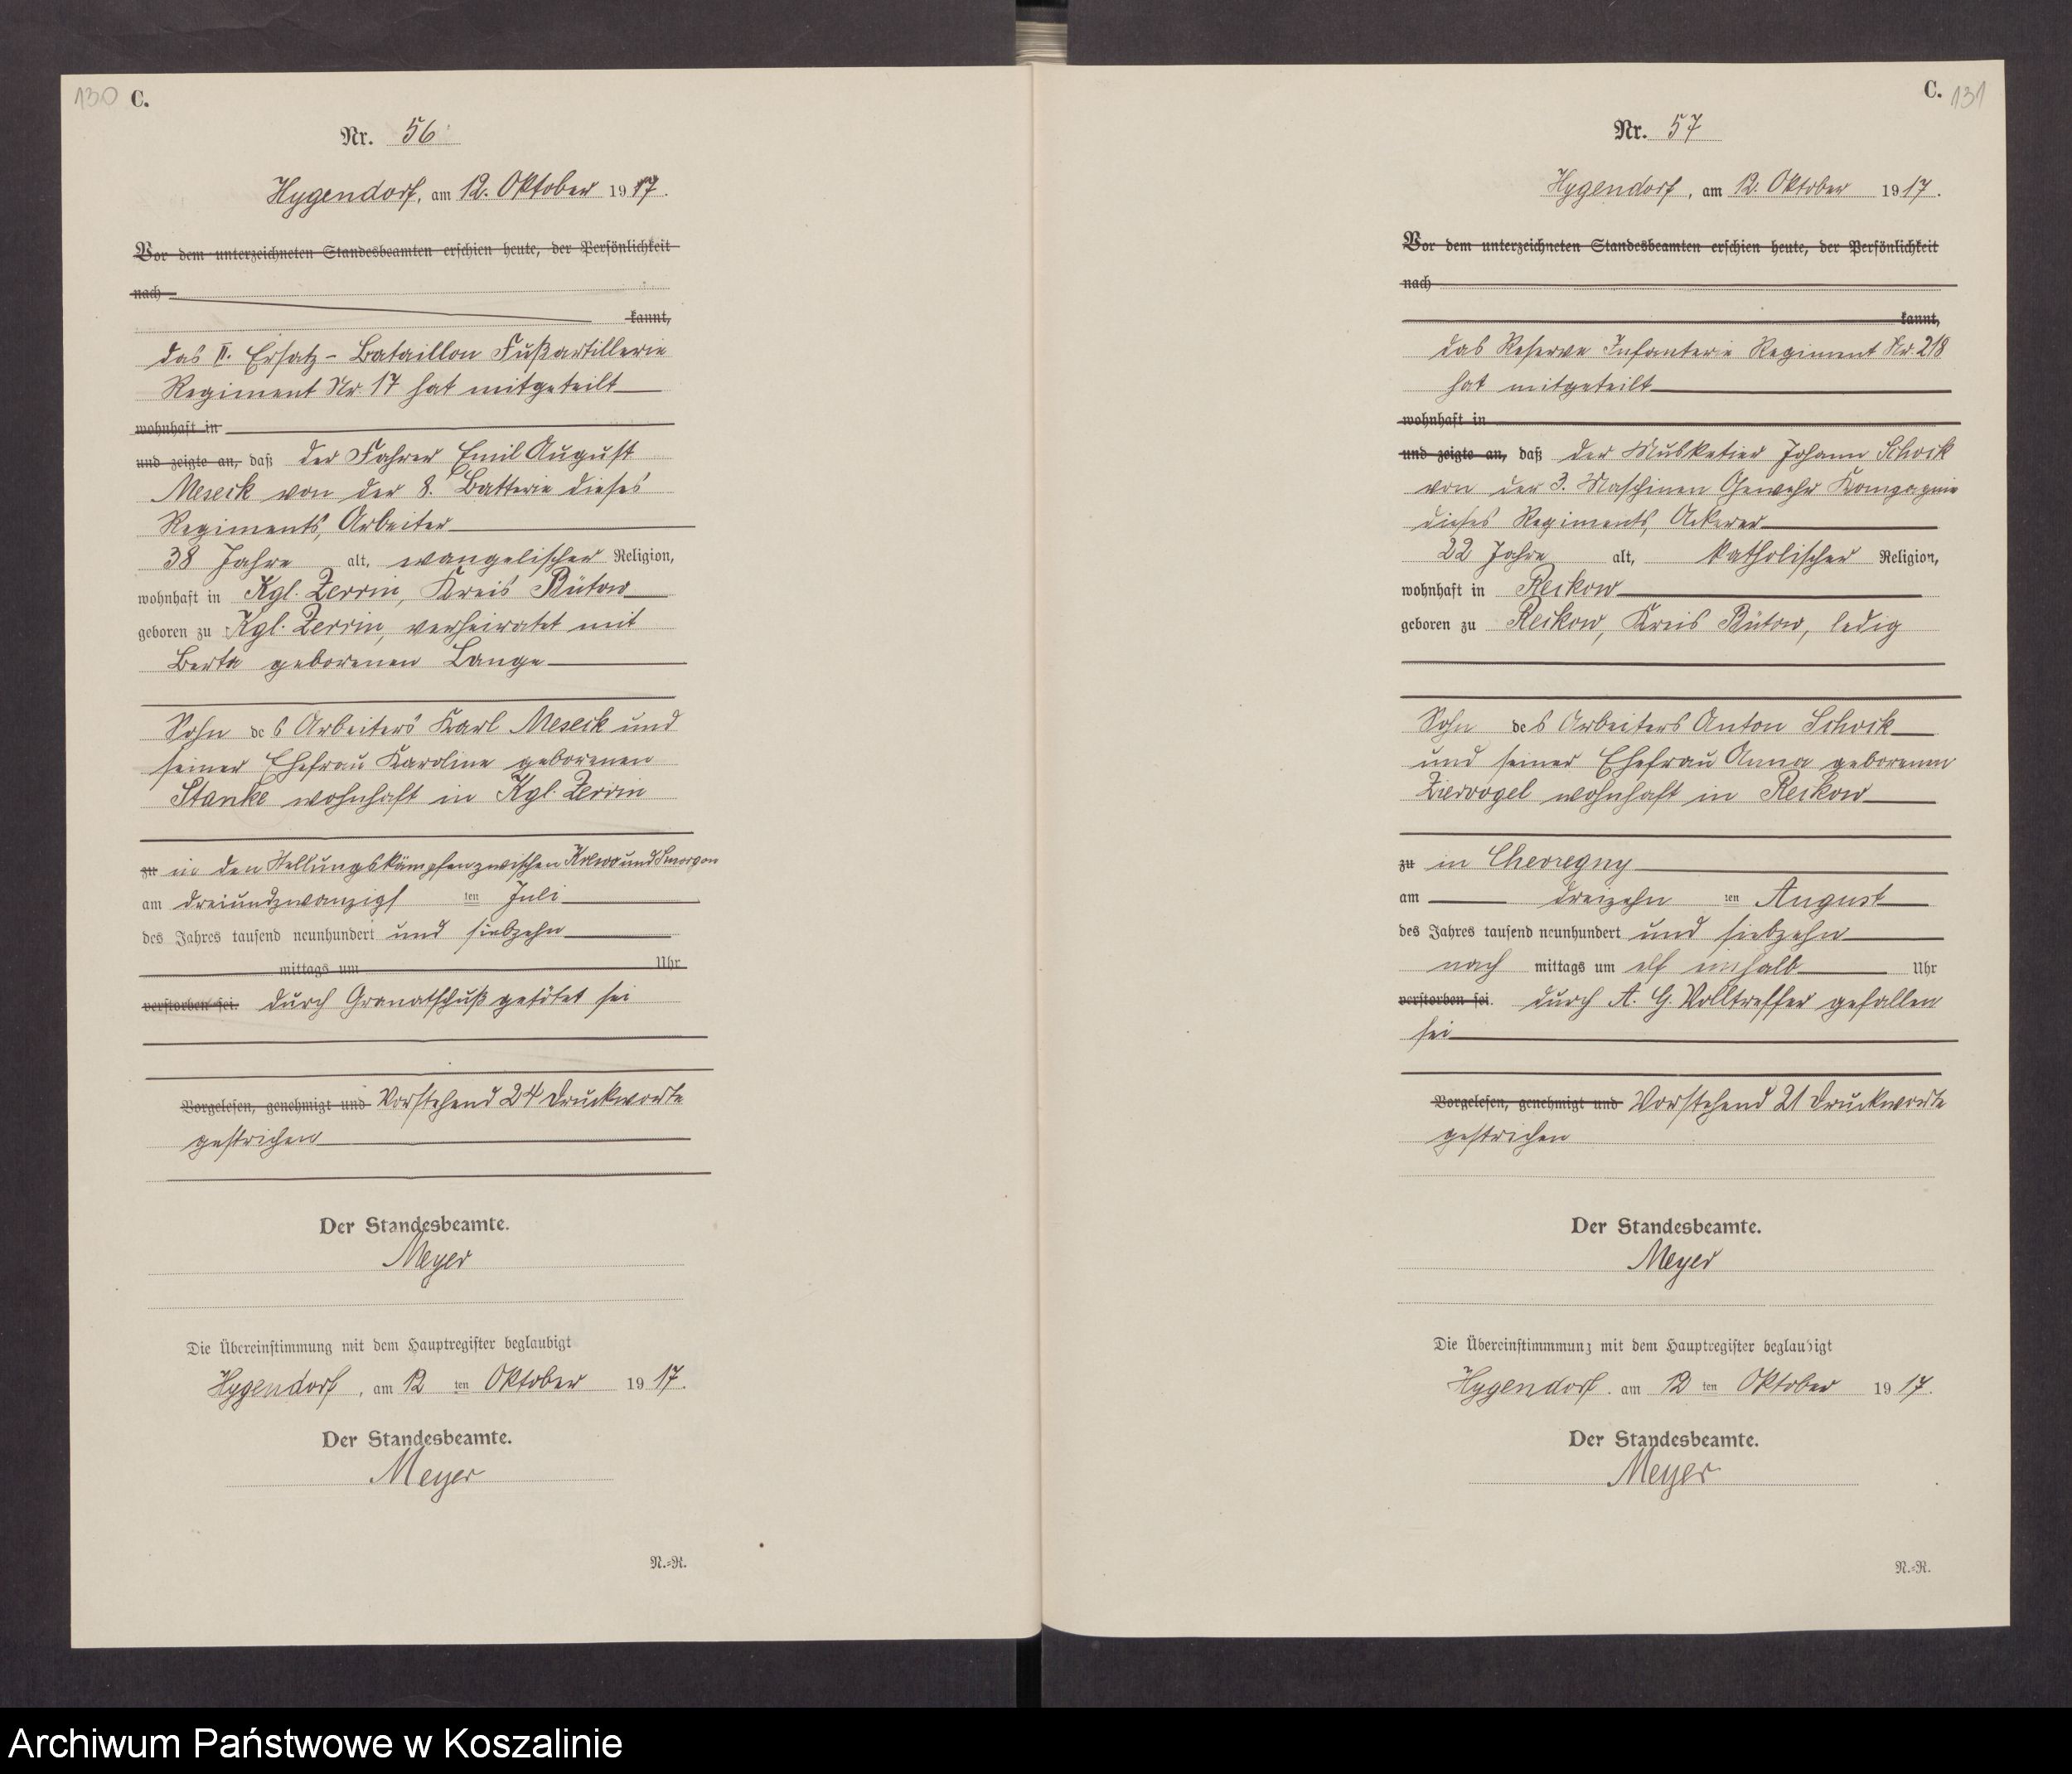 130 C.
Nr. 56
Hygendorf, am 12. Oktober 1917.
Vor dem unterzeichneten Standesbeamten erschien heute, der Persönlichkeit
nach
kannt,
das II. Ersatz-Bataillon Fußartillerie
Regiment Nr. 17 hat mitgeteilt
wohnhaft in
und zeigte an, daß der Fahrer Emil August
Meseck von der 8. Batterie dieses
Regiments, Arbeiter
38 Jahre alt, evangelischer Religion,
wohnhaft in Kgl. Zerrin, Kreis Bütow
geboren zu Kgl. Zerrin, verheiratet mit
Berta geborenen Lange
Sohn des Arbeiters Karl Meseck und
seiner Ehefrau Karoline geborenen
Stanke wohnhaft in Kgl. Zerrin
zu in den Stellungskämpfen zwischen Krewo und Smorgon
am dreiundzwanzigsten Juli
des Jahres tausend neunhundert und siebzehn
mittags um Uhr
verstorben sei. durch Granatschuß getötet sei
Vorgelesen, genehmigt und Vorstehend 24 Druckworte
gestrichen
Der Standesbeamte.
Meyer
Die Übereinstimmung mit dem Hauptregister beglaubigt
Hygendorf, am 12 ten Oktober 1917.
Der Standesbeamte.
Meyer
N.-R.
C. 131
Nr. 57
Hygendorf, am 12. Oktober 1917.
Vor dem unterzeichneten Standesbeamten erschien heute, der Persönlichkeit
nach
kannt,
das Reserve Infanterie Regiment Nr. 218
hat mitgeteilt
wohnhaft in
und zeigte an, daß der Musketier Johann Schock
von der 3. Maschinen Gewehr Kompagnie
dieses Regiments, Ackerer
22 Jahre alt, katholischer Religion,
wohnhaft in Reckow
geboren zu Reckow, Kreis Bütow, ledig
Sohn des Arbeiters Anton Schock
und seiner Ehefrau Anna geborenen
Ziervogel wohnhaft in Reckow
zu in Chevregny
am dreizehn ten August
des Jahres tausend neunhundert und siebzehn
nach mittags um elf einhalb Uhr
verstorben sei. durch A. G. Volltreffer gefallen
sei
Vorgelesen, genehmigt und Vorstehend 21 Druckworte
gestrichen
Der Standesbeamte.
Meyer
Die Übereinstimmmung mit dem Hauptregister beglaubigt
Hygendorf. am 12 ten Oktober 1917.
Der Standesbeamte.
Meyer
N.-R.
Archiwum Państwowe w Koszalinie